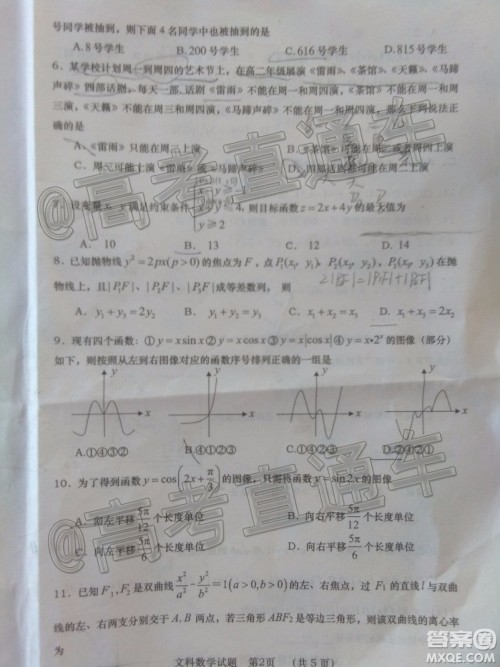 号同学被抽到，则下面4名同学中也被抽到的是
A.8号学生 B.200号学生 C.616号学生 D.815号学生
6. 某学校计划周一到周四的艺术节上，在高二年级展演《雷雨》、《茶馆》、《天籁》、《马蹄
声碎》四部话剧，每天一部，话剧《雷雨》不能在周一和周四演，《茶馆》不能在周一和周三
演，《天籁》不能在周三和周四演，《马蹄声碎》不能在周一和周四演，那么下列说法正
确的是
A、《雷雨》只能在周二上演 B、《茶馆》可能在周二或周四上演
C、周三可能上演《雷雨》或《马蹄声碎》 D、四部话剧都可能在周二上演
7. 设变量 x, y 满足约束条件 x+y≤4, 则目标函数 z=2x+4y 的最大值为
y≥2
A. 10 B. 13 C. 12 D. 14
8. 已知抛物线 y²=2px(p>0) 的焦点为 F，点 P₁(x₁, y₁)、P₂(x₂, y₂)、P₃(x₃, y₃) 在抛
2|P₂F|=|P₁F|+|P₃F|
物线上，且 |P₁F|、|P₂F|、|P₃F| 成等差数列，则
A. y₁+y₃=2y₂ B. y₁+y₃=y₂ C. x₁+x₃=x₂ D. x₁+x₃=2x₂
9. 现有四个函数：①y=x sin x ②y=x cos x ③y=x|cos x| ④y=x•2ˣ 的图像（部分）
如下，则按照从左到右图像对应的函数序号排列正确的一组是
y y y y
x x x x
A.①④③② B.④①②③ C.①④②③ D.③④②①
10. 为了得到函数 y=cos(2x+π/3) 的图像，只需将函数 y=sin2x 的图像
A. 向左平移 5π/12 个长度单位 B. 向右平移 5π/12 个长度单位
C. 向左平移 5π/6 个长度单位 D. 向右平移 5π/6 个长度单位
11. 已知 F₁,F₂ 是双曲线 x²/a²-y²/b²=1(a>0,b>0) 的左、右焦点，过 F₁ 的直线 l 与双曲
线的左、右两支分别交于 A, B 两点，若三角形 ABF₂ 是等边三角形，则该双曲线的离心率
为
文科数学试题 第2页 （共5页）
@高考直通车
@高考直通车
@高考直通车
答案圈
MXQE.COM